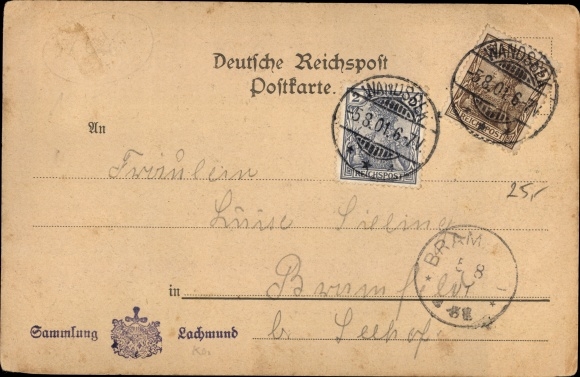 Deutsche Reichspost
Postkarte.
WANDSBEK
5.8.01.6-7N.
WANDSBEK
5.8.01.6-7N.
2
REICHSPOST
REICHSPOST
An
Fräulein
Luise
25,-
BRAM
5 8
in Bramfeld
b. Seehof
Sammlung Lachmund